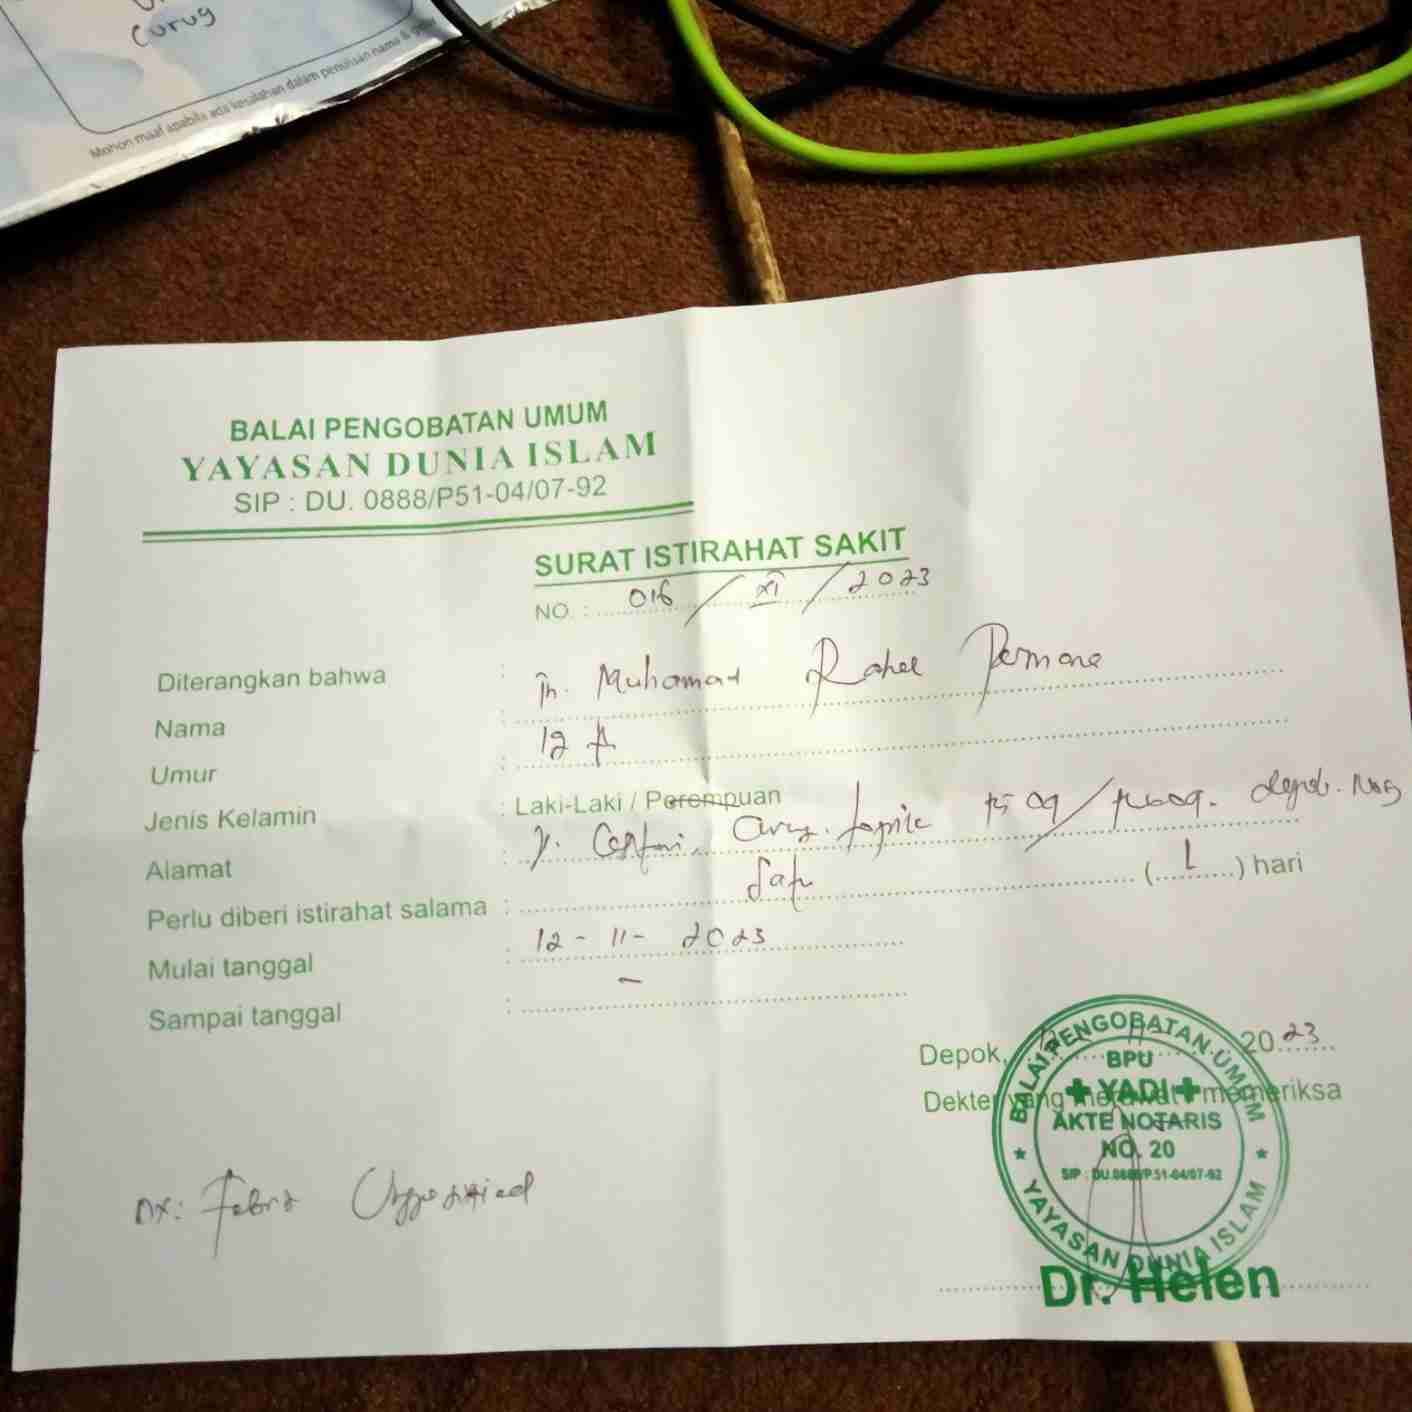 Curug
Mohon maaf apabila ada kesalahan dalam penulisan nama &
BALAI PENGOBATAN UMUM
YAYASAN DUNIA ISLAM
SIP : DU. 0888/P51-04/07-92
SURAT ISTIRAHAT SAKIT
NO. : 016 / XI / 2023
Diterangkan bahwa :
Nama : Muhamad
Umur : 12
Jenis Kelamin : Laki-Laki / Perempuan
Alamat :
Perlu diberi istirahat salama : (1) hari
Mulai tanggal : 12 - 11 - 2023
Sampai tanggal : -
Depok, 2023
Dekter yang merawat / memeriksa
BALAI PENGOBATAN UMUM
BPU
YADI
AKTE NOTARIS
NO. 20
SIP : DU.0888/P.51-04/07-92
YAYASAN DUNIA ISLAM
DX: Febris
Dr. Helen